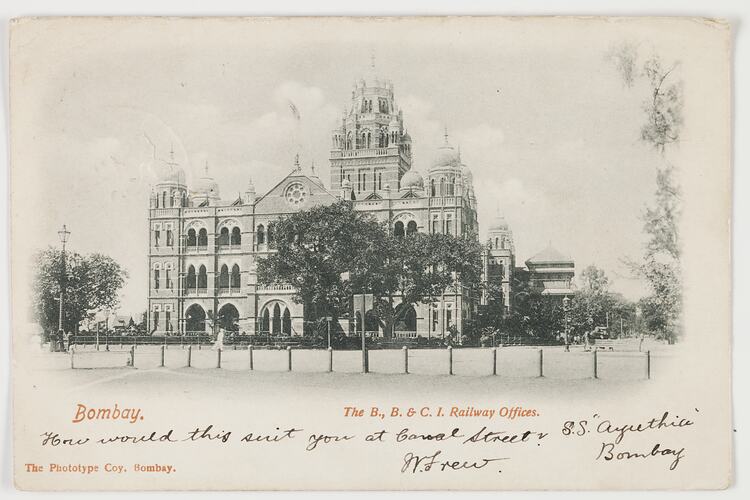 Bombay.
The B., B. & C. I. Railway Offices.
How would this suit you at Canal Street?
S.S. "Ayuthia"
Bombay
W. Frew.
The Phototype Coy, Bombay.